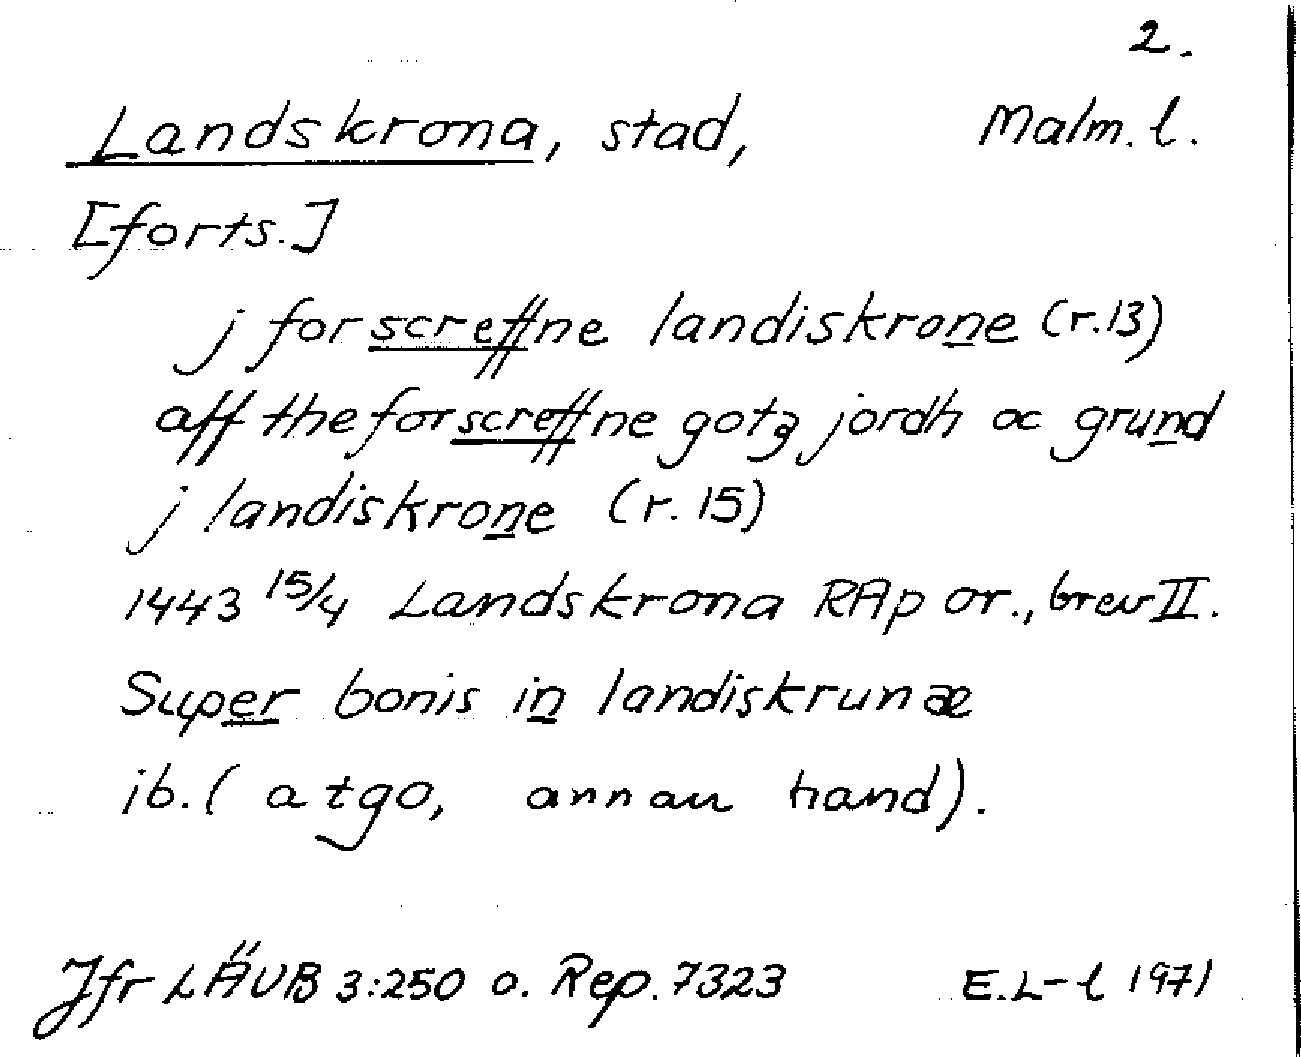 2.
Landskrona, stad, Malm. l.
[forts.]
j forscreffne landiskrone (r.13)
aff the forscreffne gotȝ jordh oc grund
j landiskrone (r. 15)
1443 15/4 Landskrona RAp or., brev II.
Super bonis in landiskrunæ
ib. (a tgo, annan hand).
Jfr LÄUB 3:250 o. Rep. 7323 E.L-l 1971